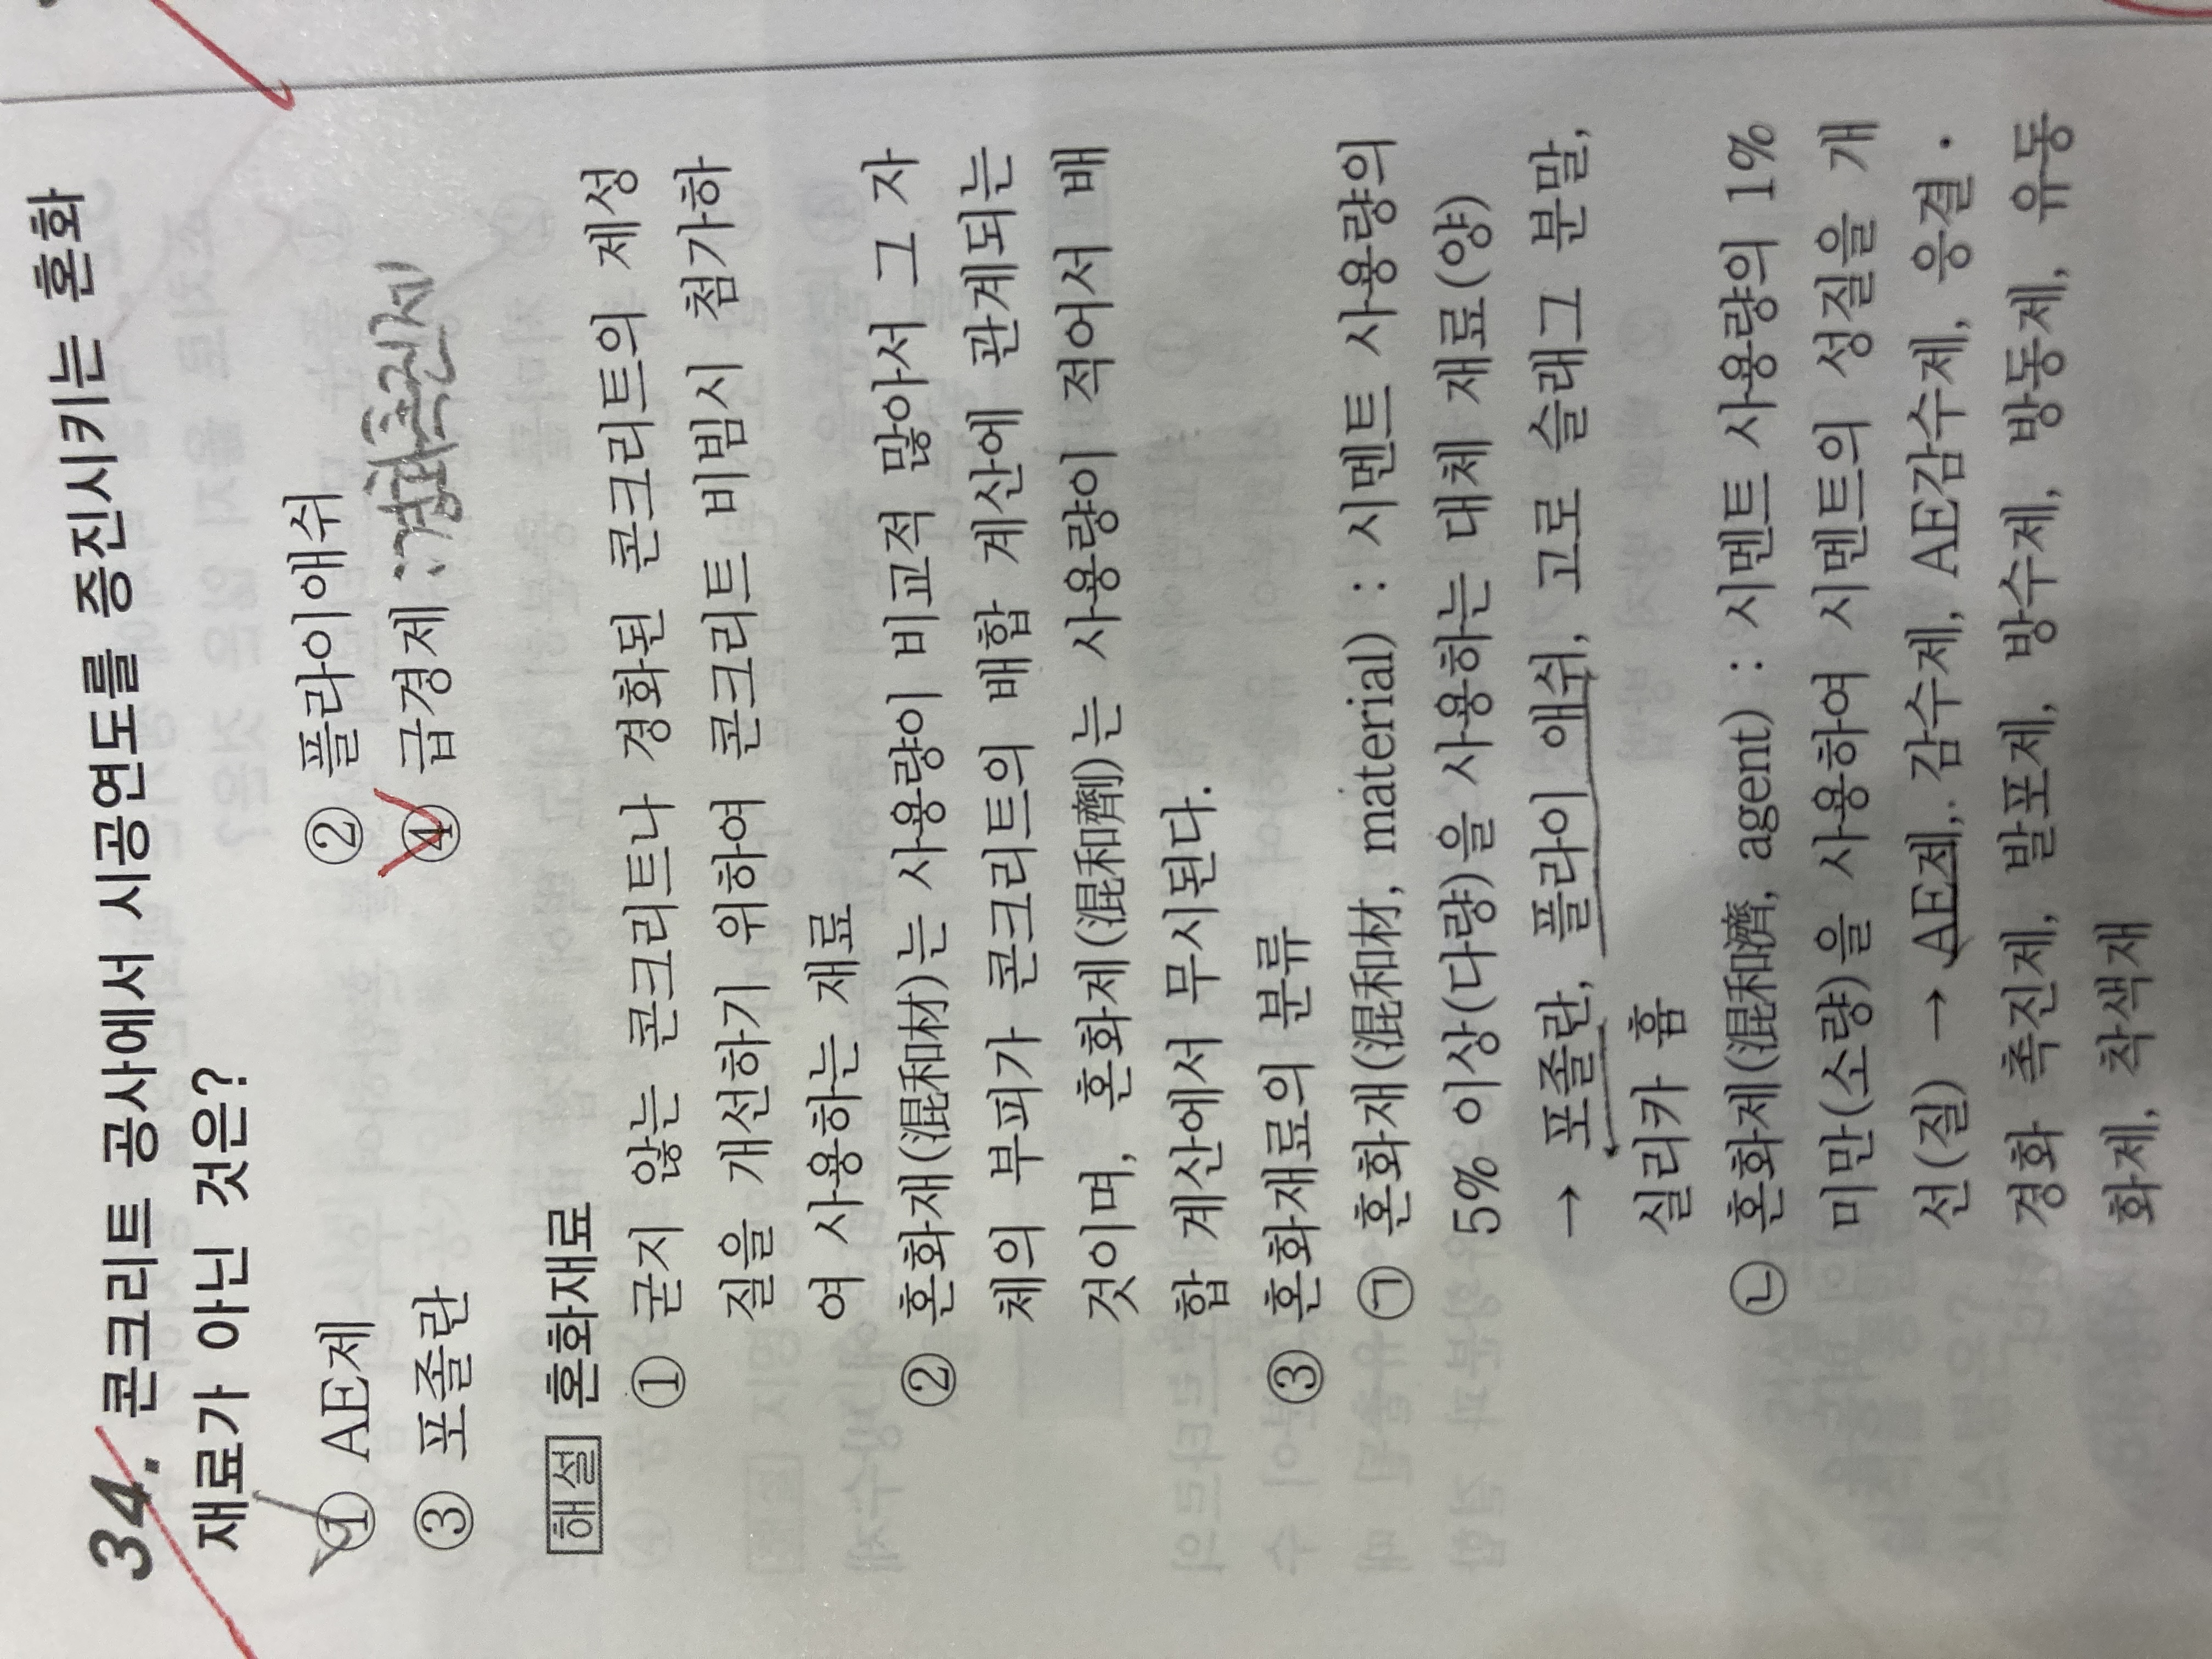 34. 콘크리트 공사에서 시공연도를 증진시키는 혼화
재료가 아닌 것은?
① AE제 ② 플라이애쉬
③ 포졸란 ④ 급경제 :경화촉진제
해설 혼화재료
① 굳지 않는 콘크리트나 경화된 콘크리트의 제성
질을 개선하기 위하여 콘크리트 비빔시 첨가하
여 사용하는 재료
② 혼화재(混和材)는 사용량이 비교적 많아서 그 자
체의 부피가 콘크리트의 배합 계산에 관계되는
것이며, 혼화제(混和劑)는 사용량이 적어서 배
합 계산에서 무시된다.
③ 혼화재료의 분류
㉠ 혼화재(混和材, material) : 시멘트 사용량의
5% 이상(다량)을 사용하는 대체 재료(양)
→ 포졸란, 플라이 애쉬, 고로 슬래그 분말,
실리카 흄
㉡ 혼화제(混和濟, agent) : 시멘트 사용량의 1%
미만(소량)을 사용하여 시멘트의 성질을 개
선(질) → AE제, 감수제, AE감수제, 응결·
경화 촉진제, 발포제, 방수제, 방동제, 유동
화제, 착색재